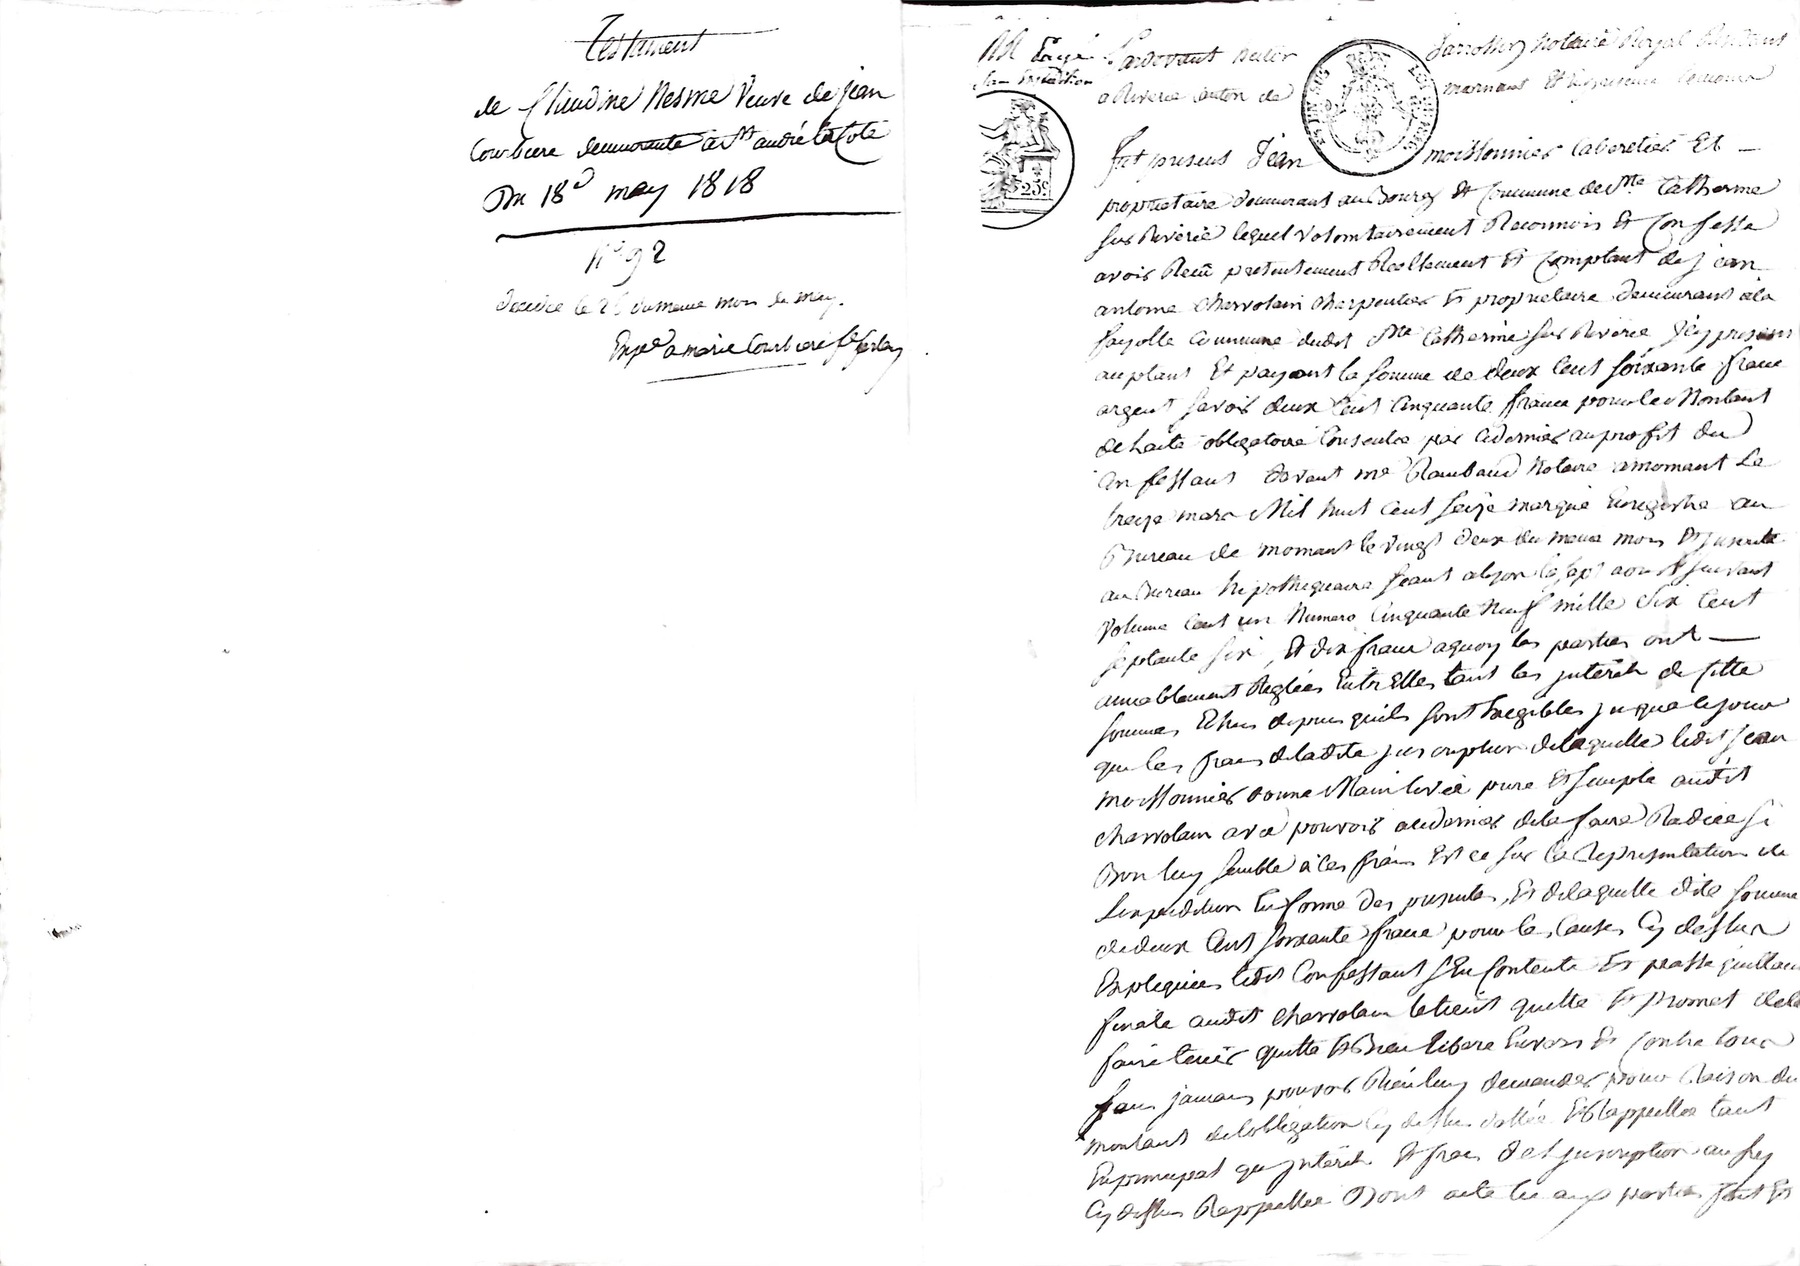 Testament
de Claudine Nesme Veuve de jean
Courbiere demeurante a St andré la Cote
Du 18d may 1818
n° 92
décédée le 26 du meme mois de may.
Expe a marie Courbiere fe
Pardevant
Notaire Royal Residant
a Riverie canton de
mornant et temoins
25c
fut présent Jean
moissonnier Cabaretier Et
propriétaire demeurant au Bourg Et Commune de Ste Catherine
sur Riverie lequel volontairement Reconnois Et Confesse
avoir Reçu présentement Reellement Et Comptant de jean
antoine Chervolain Charpentier Et propriétaire demeurant à la
fayolle Commune dudit Ste Catherine sur Riverie Icy présent
acceptant Et payant la somme de deux Cent soixante franc
argent savoir deux Cent Cinquante franc pour le Montant
de Lacte obligatoire Consentie par Cedernier au profit du
Confessant devant me Raimbaud Notaire a mornant Le
treize mars Mil huit Cent seize marque Enregistre au
Bureau de mornant le vingt deux du meme mois Et Inscrite
au Bureau hipothequaire séant a lyon le sept aout suivant
volume Cent un Numero Cinquante Neuf mille Six Cent
septante six, Et dix franc aquoy les parties ont
amiablement Réglées Entr'Elles tant les intérêts de cette
somme Echus depuis quils sont Exegibles jusqua ce jour
que les frais de ladite Inscription de laquelle ledit Jean
moissonnier donne Main levée pure Et simple audit
chervolain avec pouvoir audernier de la faire Radiée si
Bon luy semble à ces frais Et ce sur la Représentation de
Lexpédition En forme des présentes, Et de laquelle dite somme
de deux Cent soixante franc pour les Causes Cy dessus
Expliquées ledit Confessant s'En Contente Et passe quittance
finale audit Chervolain le tient quitte Et promet de le
faire tenir quitte Et Bien libere Envers Et Contre tous
sans jamais pouvoir Rien luy demander pour Raison du
montant de lobligation Cy dessus dattée Et Rappellée tant
En principal que Intérêts Et frais d'Inscription aussy
Cy dessus Rappellée Dont acte lu aux parties fait Et